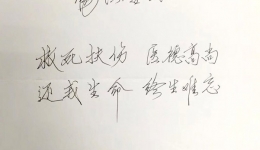 救死扶伤 医德高尚
还我生命 终生难忘